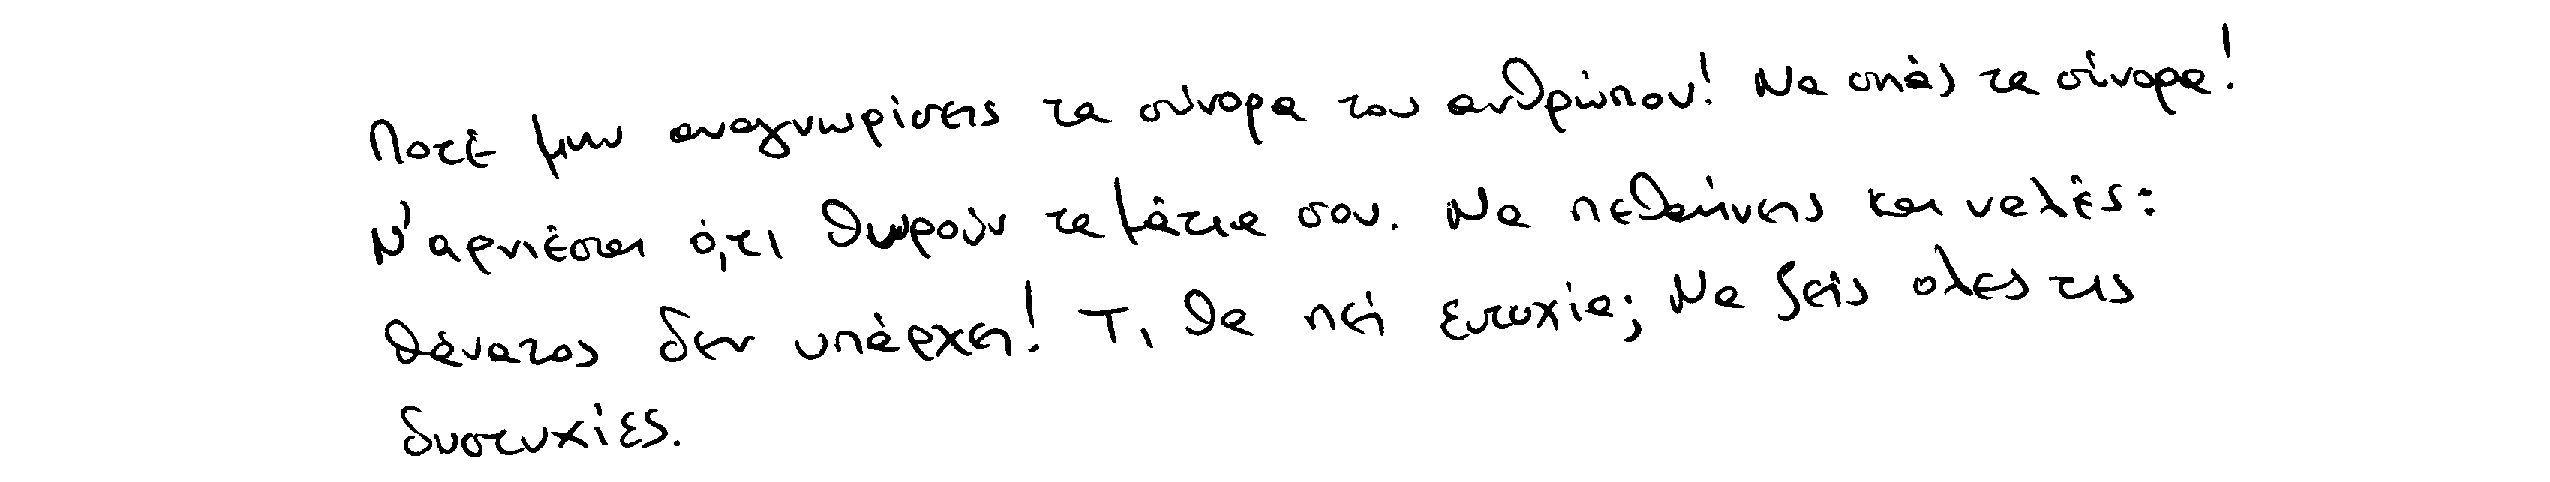 Ποτέ μην αναγνωρίσεις τα σύνορα του ανθρώπου! Να σπάς τα σύνορα!
Ν' αρνιέσαι ό,τι θωρούν τα μάτια σου. Να πεθαίνεις και να λές:
θάνατος δεν υπάρχει! Τι θα πεί ευτυχία; Να ζείς όλες τις
δυστυχίες.